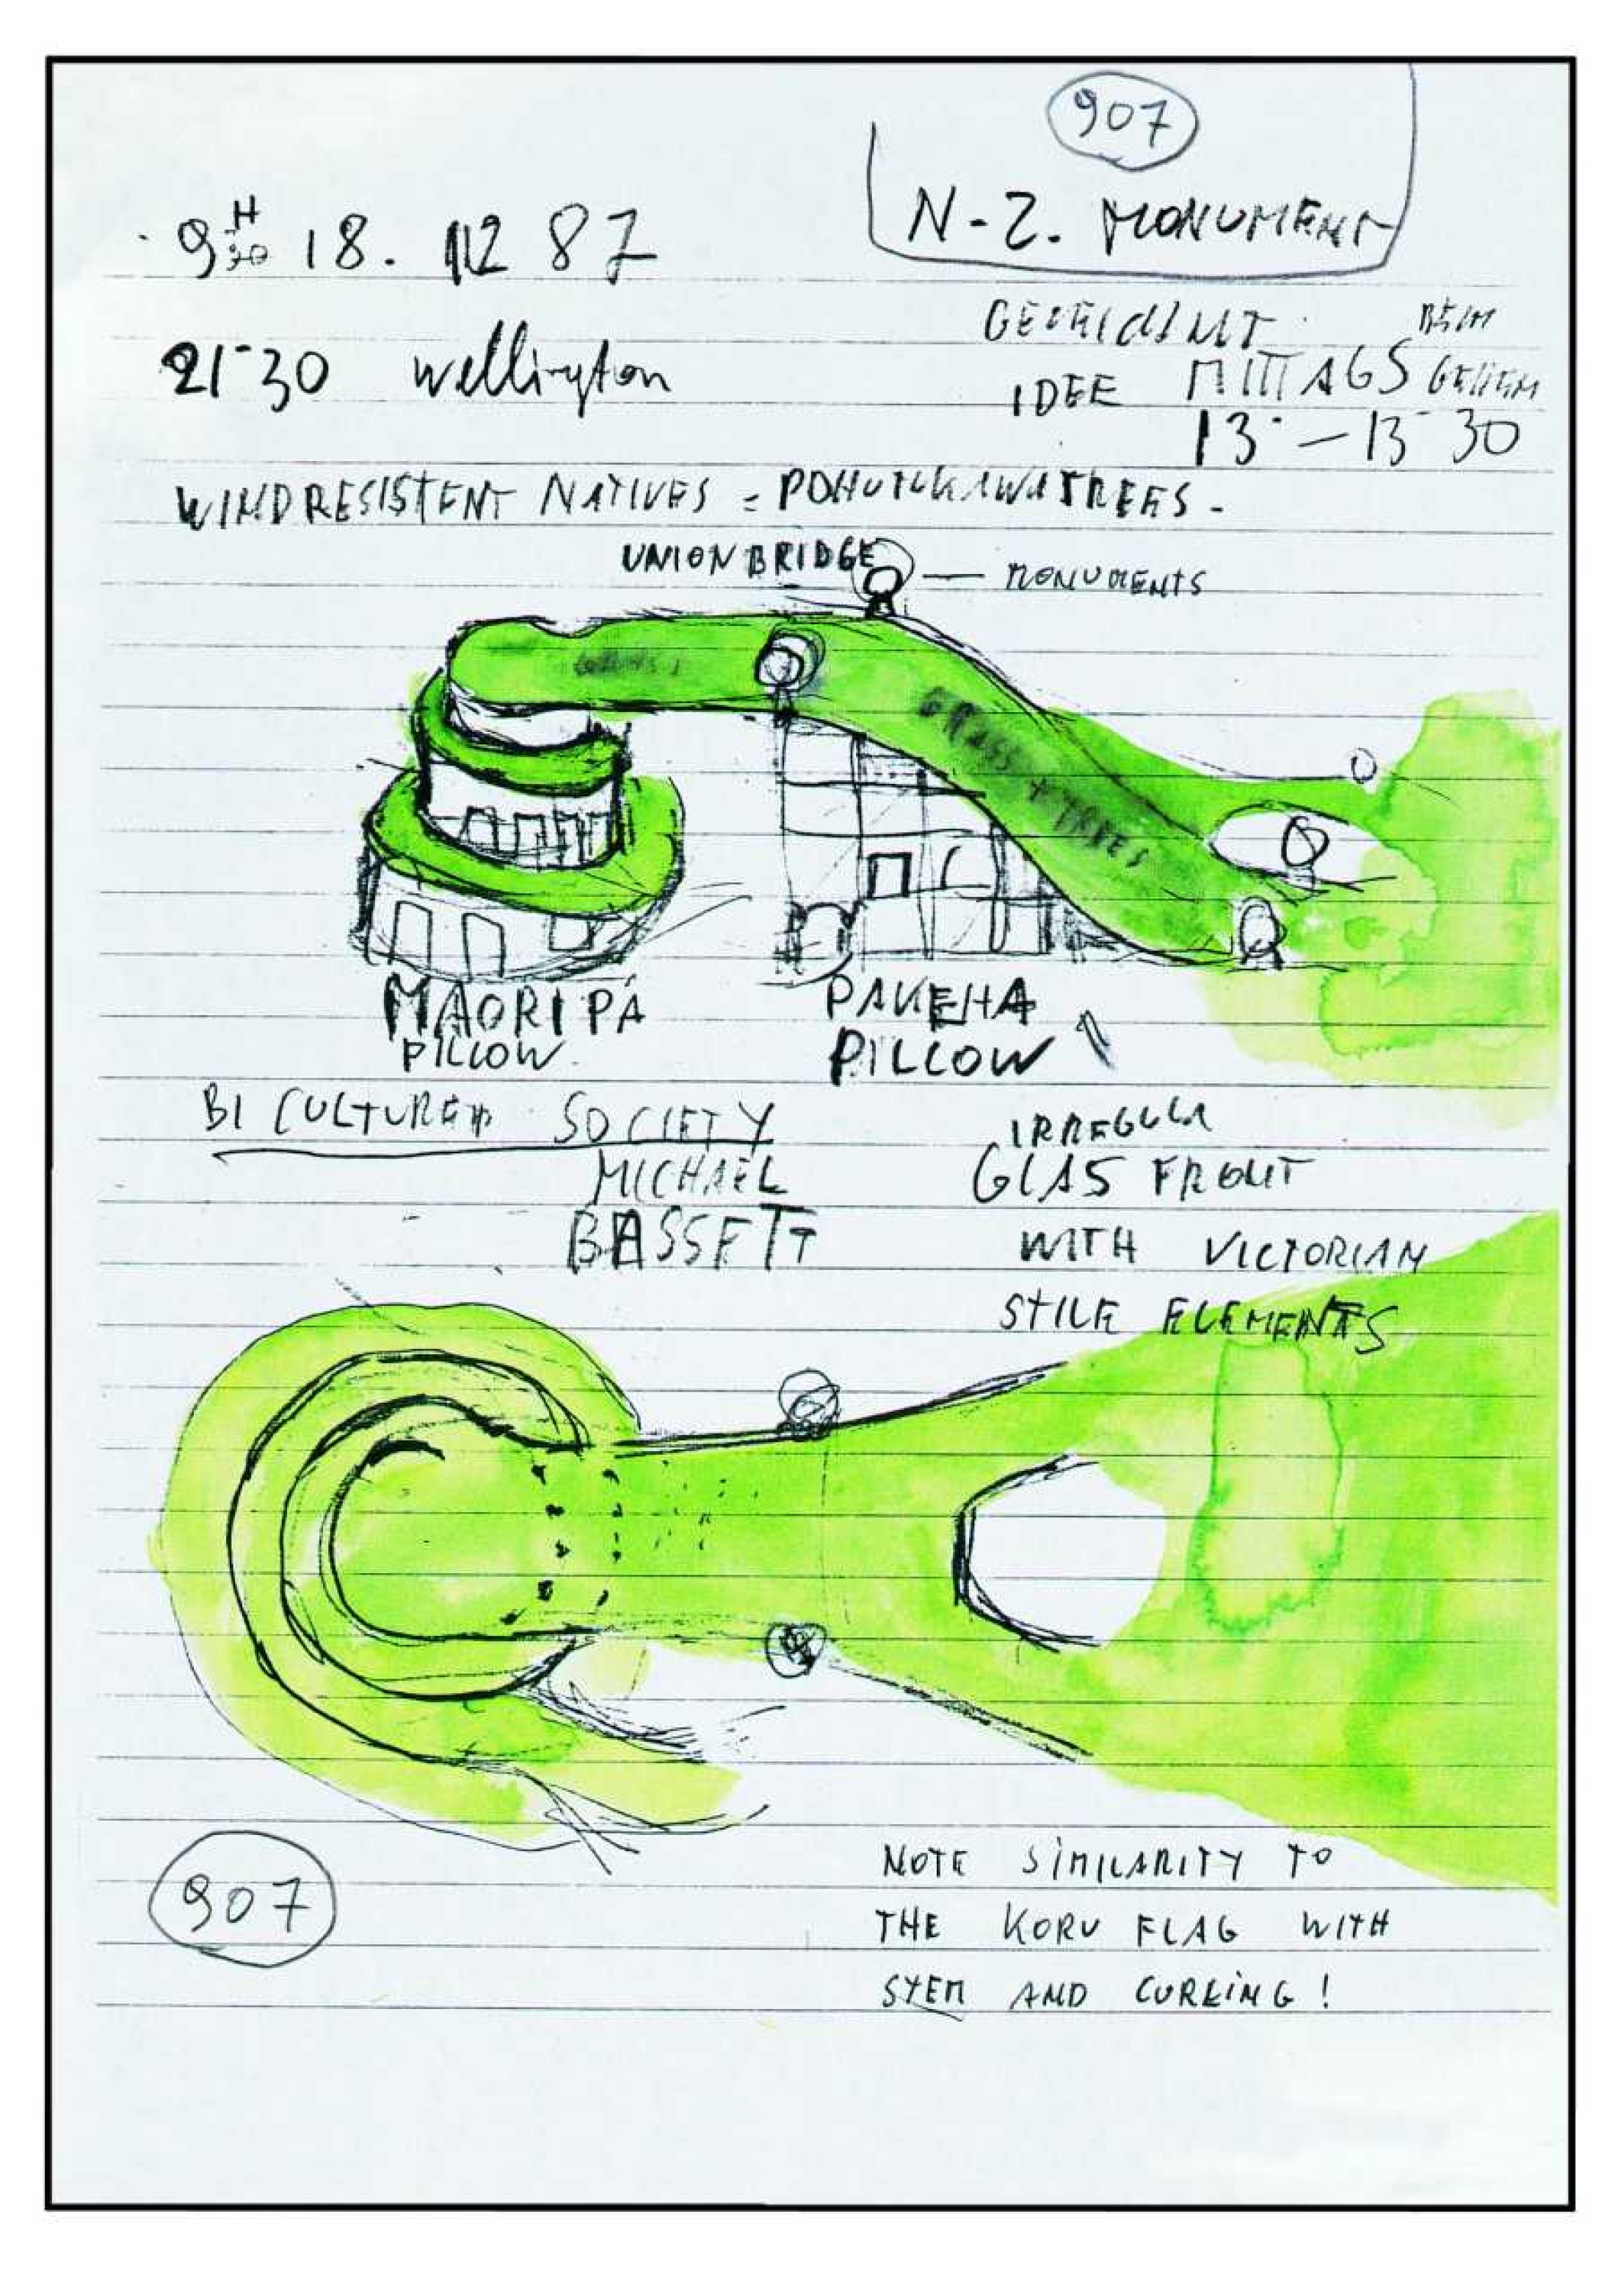 907
N-Z. MONUMENT
9 H 30 18. 12 87
21-30 wellington
GEZEICHNET
IDEE MITTAGS BEIM GEHEN
13 — 13 30
WINDRESISTENT NATIVES = POHUTUKAWA TREES -
UNION BRIDGE — MONUMENTS
GRASS
GRASS + TREES
MAORI PÁ
PILLOW
PAKEHA
PILLOW
BI CULTURED SOCIETY
MICHAEL
BASSETT
IRREGULA
GLAS FRONT
WITH VICTORIAN
STILE ELEMENTS
907
NOTE SIMILARITY TO
THE KORU FLAG WITH
STEM AND CURLING!